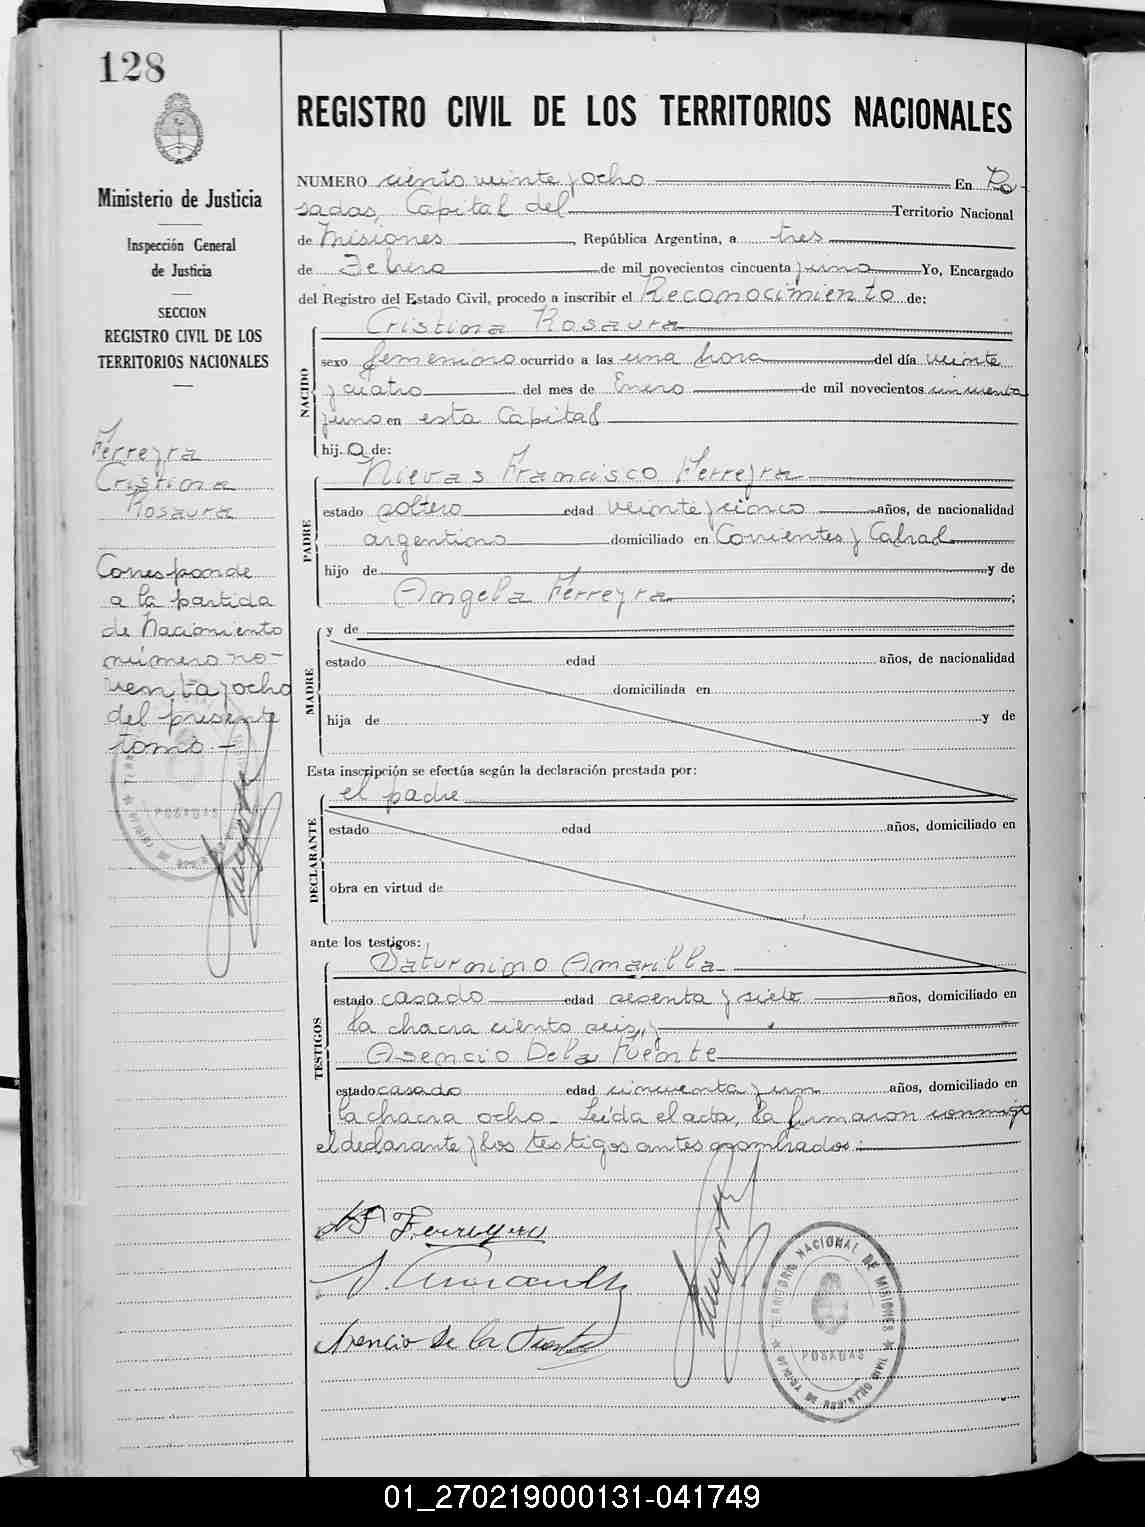 128
Ministerio de Justicia
Inspección General
de Justicia
SECCION
REGISTRO CIVIL DE LOS
TERRITORIOS NACIONALES
Ferreyra
Cristina
Rosaura
Corresponde
a la partida
de Nacimiento
número no-
venta y ocho
del presente
tomo.-
POSADAS
REGISTRO CIVIL DE LOS TERRITORIOS NACIONALES
NUMERO ciento veinte y ocho En Po-
sadas, Capital del Territorio Nacional
de Misiones, República Argentina, a tres
de Febrero de mil novecientos cincuenta y uno Yo, Encargado
del Registro del Estado Civil, procedo a inscribir el Reconocimiento de:
NACIDO
Cristina Rosaura
sexo femenino ocurrido a las una hora del día veinte
y cuatro del mes de Enero de mil novecientos cincuenta
y uno en esta Capital
hij.a de:
PADRE
Nieves Francisco Ferreyra
estado soltero edad veinte y cinco años, de nacionalidad
argentino domiciliado en Corrientes y Cabral
hijo de y de
Angela Ferreyra;
MADRE
y de
estado edad años, de nacionalidad
domiciliada en
hija de y de
Esta inscripción se efectúa según la declaración prestada por:
DECLARANTE
el padre
estado edad años, domiciliado en
obra en virtud de
ante los testigos:
TESTIGOS
Saturnino Amarilla
estado casado edad sesenta y siete años, domiciliado en
la chacra ciento seis, y
Asencio De la Fuente
estado casado edad cincuenta y un años, domiciliado en
la chacra ocho. Leída el acta, la firmaron conmigo
el declarante y los testigos antes nombrados.
N F Ferreyra
Asencio de la Fuente
TERRITORIO NACIONAL DE MISIONES
POSADAS
01_270219000131-041749